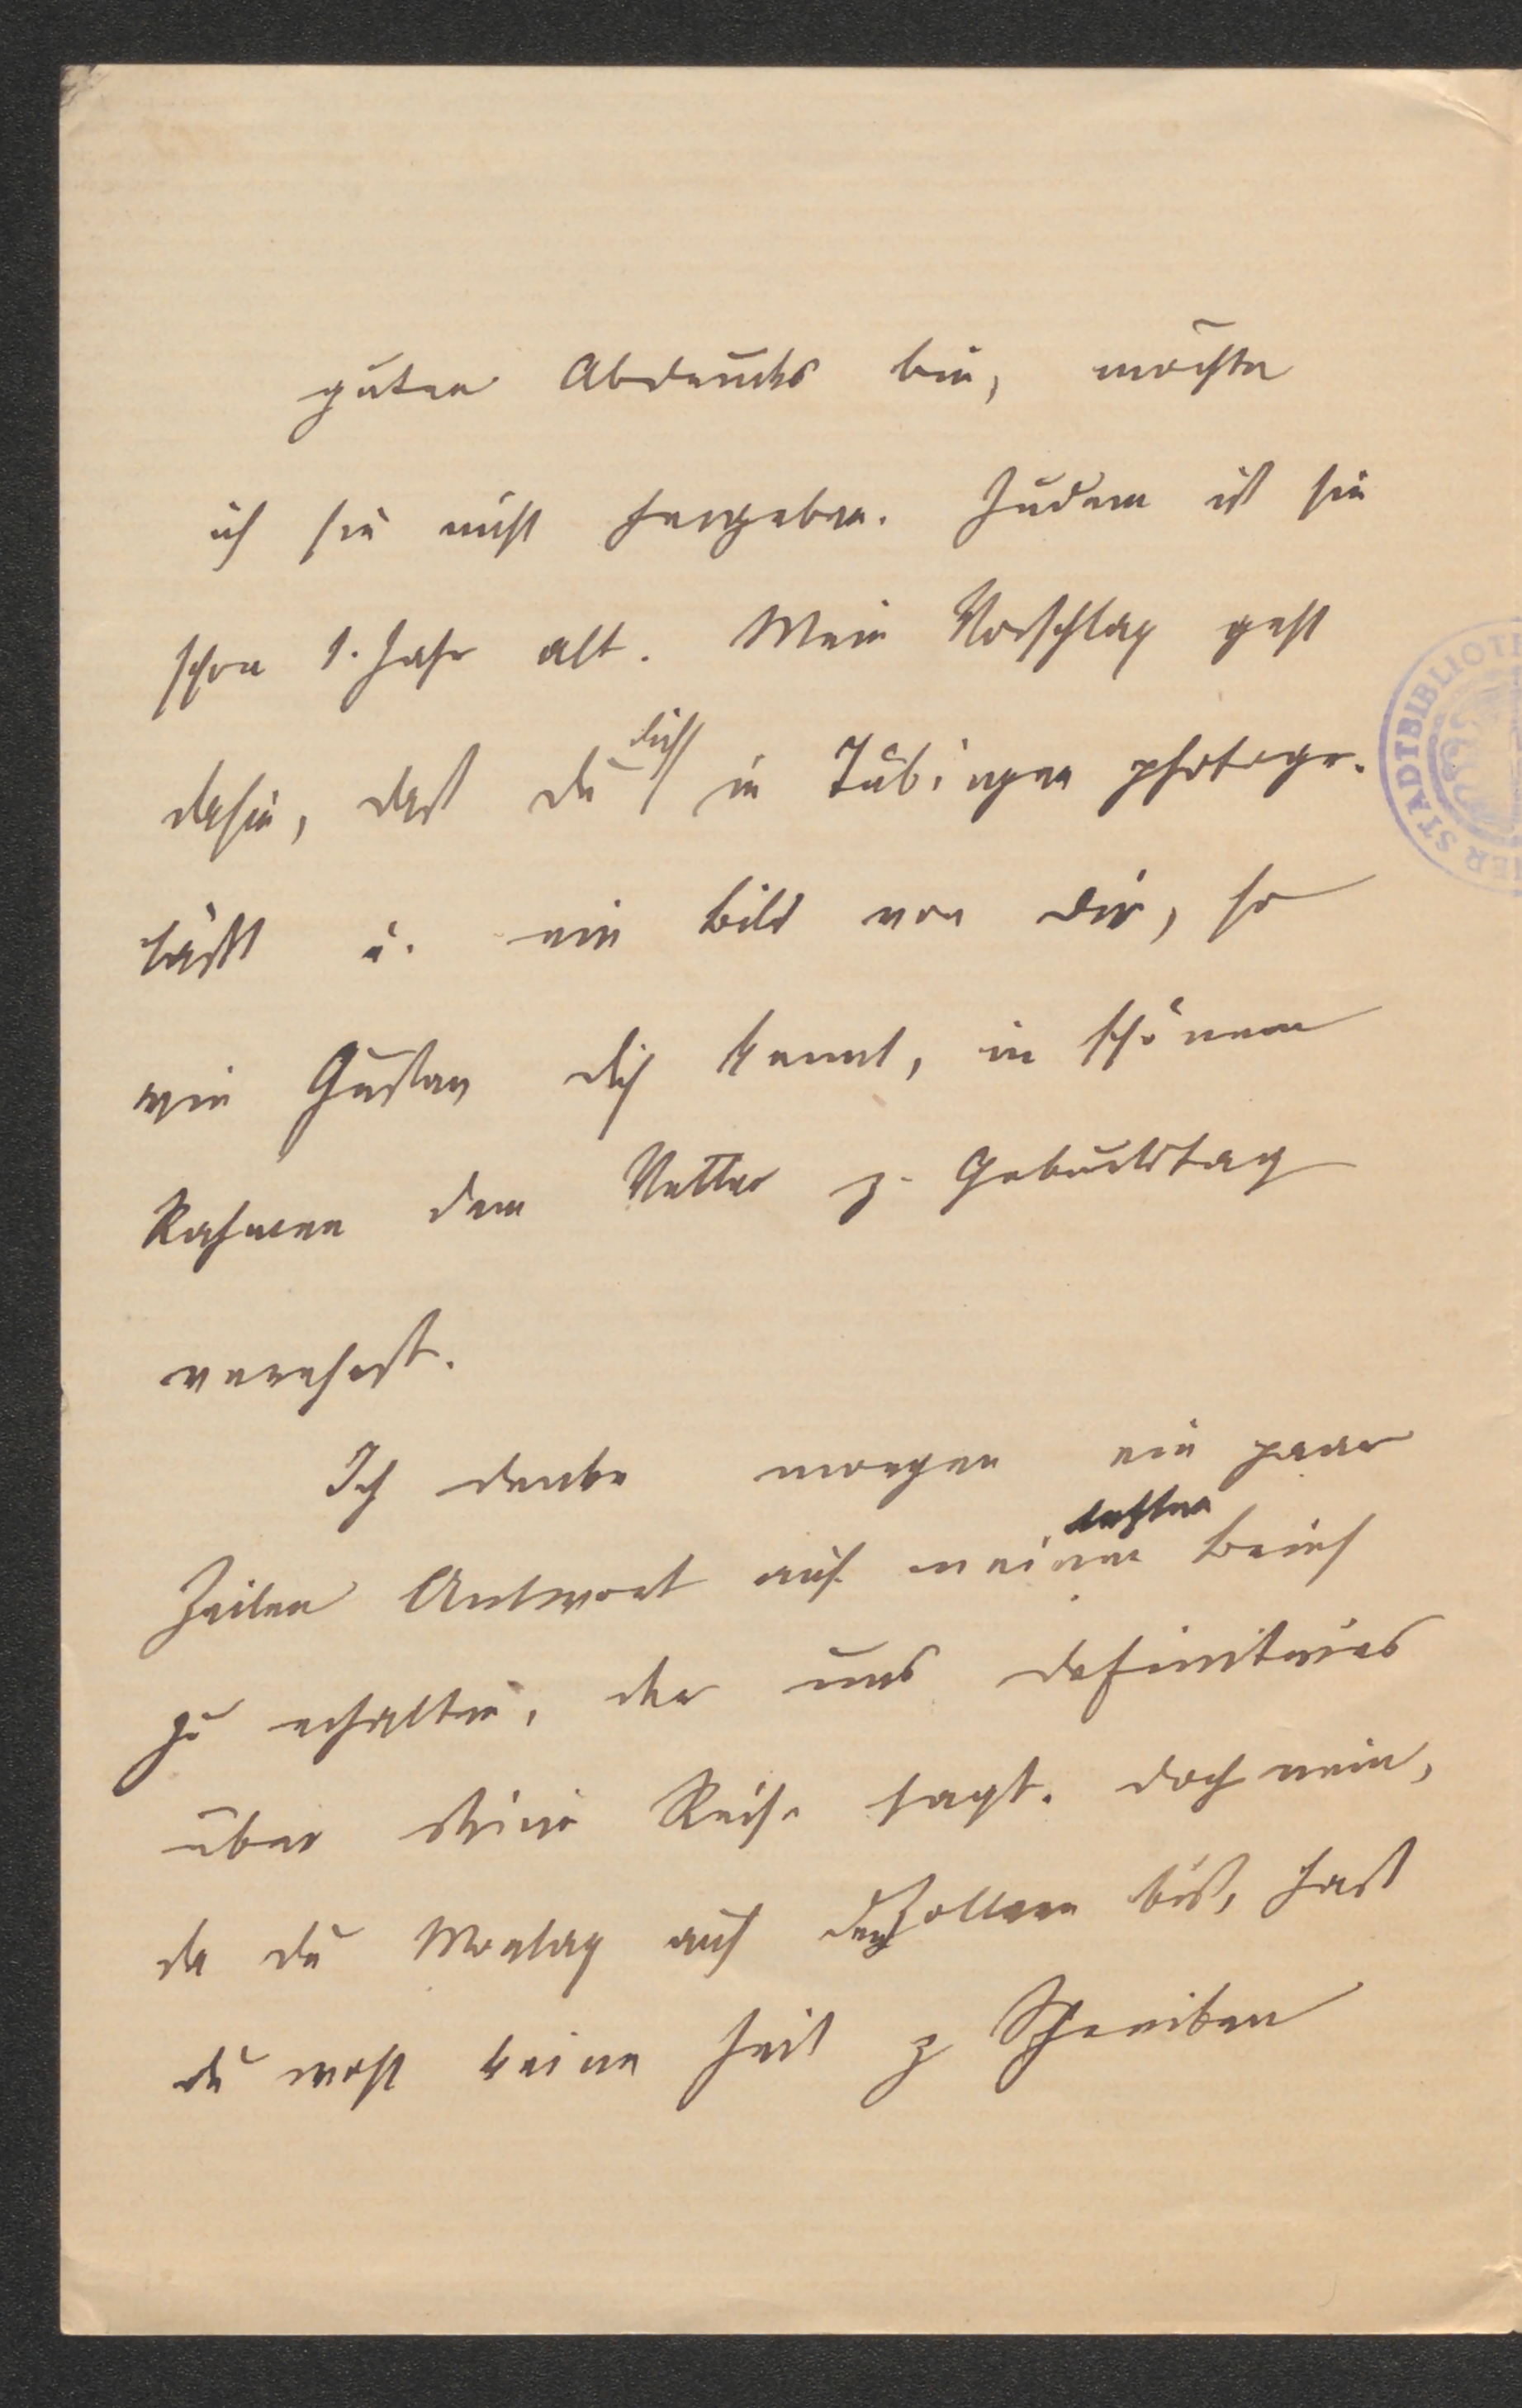 guten Abdrucks bin, möchte
ich sie nicht hergeben. Zudem ist sie
schon 1. Jahr alt. Mein Vorschlag geht
dahin, daß du dich in Tübingen photogr.
läßt u. ein Bild von dir, so
wie Gustav dich kennt, in schönem
Rahmen dem Vetter z. Geburtstag
verehrst.
Ich denke morgen ein paar
letzten
Zeilen Antwort auf meinen Brief
zu erhalten, der uns definitives
über deine Reise sagt. doch nein,
da du Montag auf den Zollern bist, hast
du wohl keine Zeit z Schreiben
STADTBIBLIOT